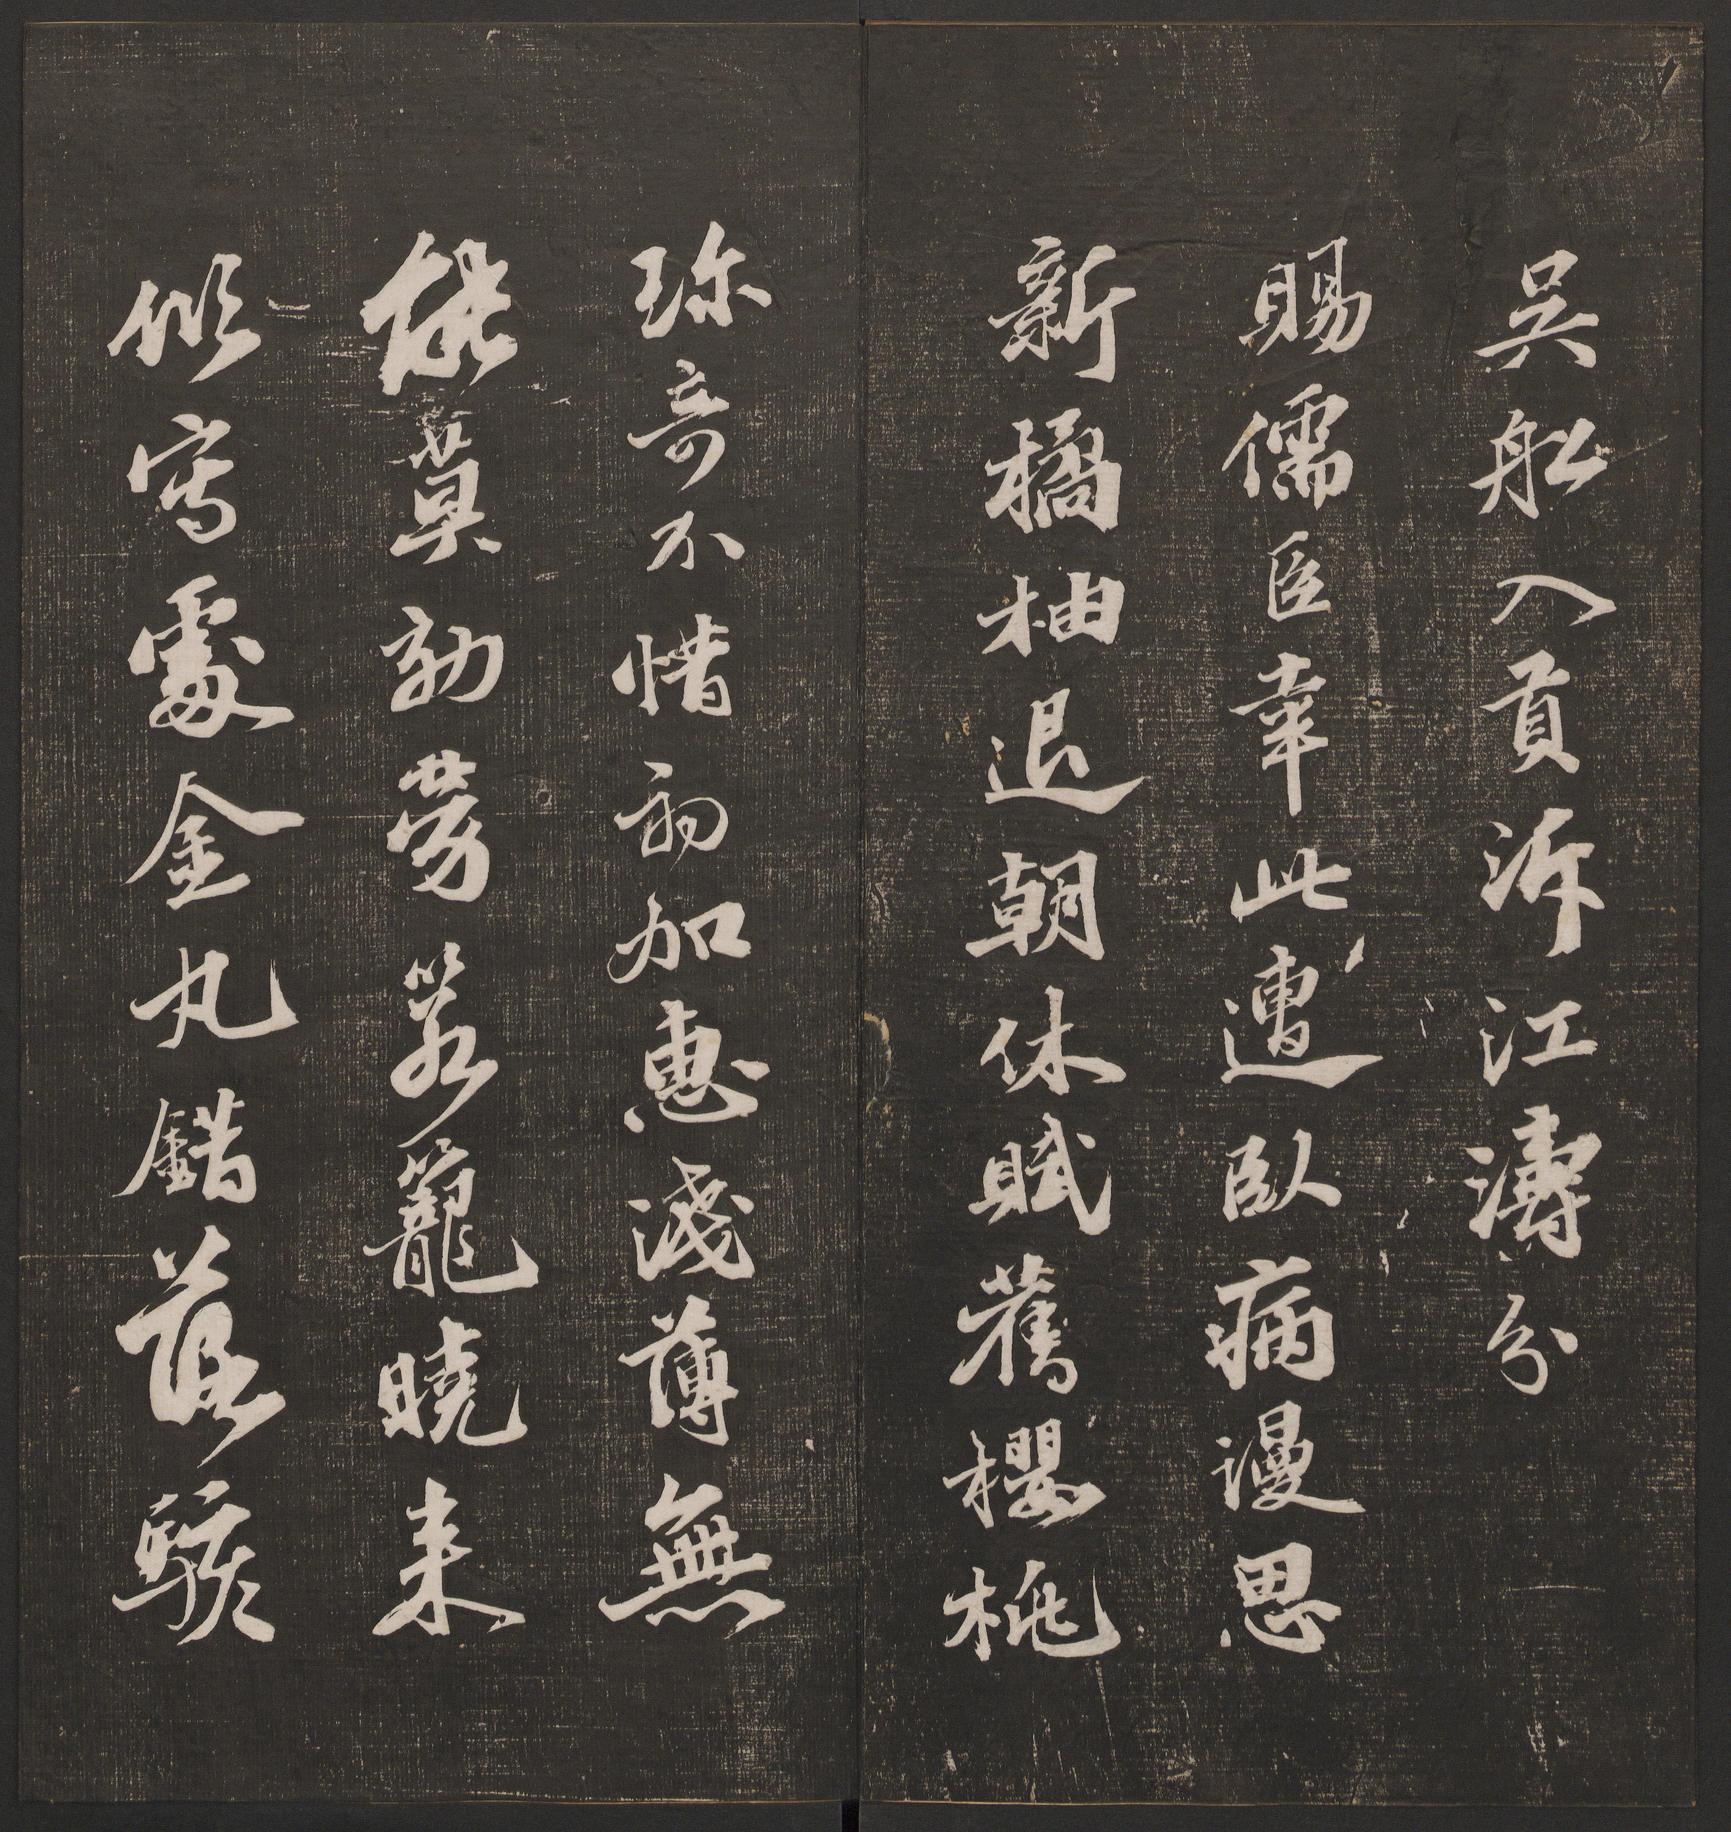 吳船入貢泝江濤分
賜儒臣幸此遭臥病漫思
新橘柚退朝休賦舊櫻桃
珎奇不惜初加惠淺薄無
能莫効勞篛籠曉来
似寫處金丸錯落駭